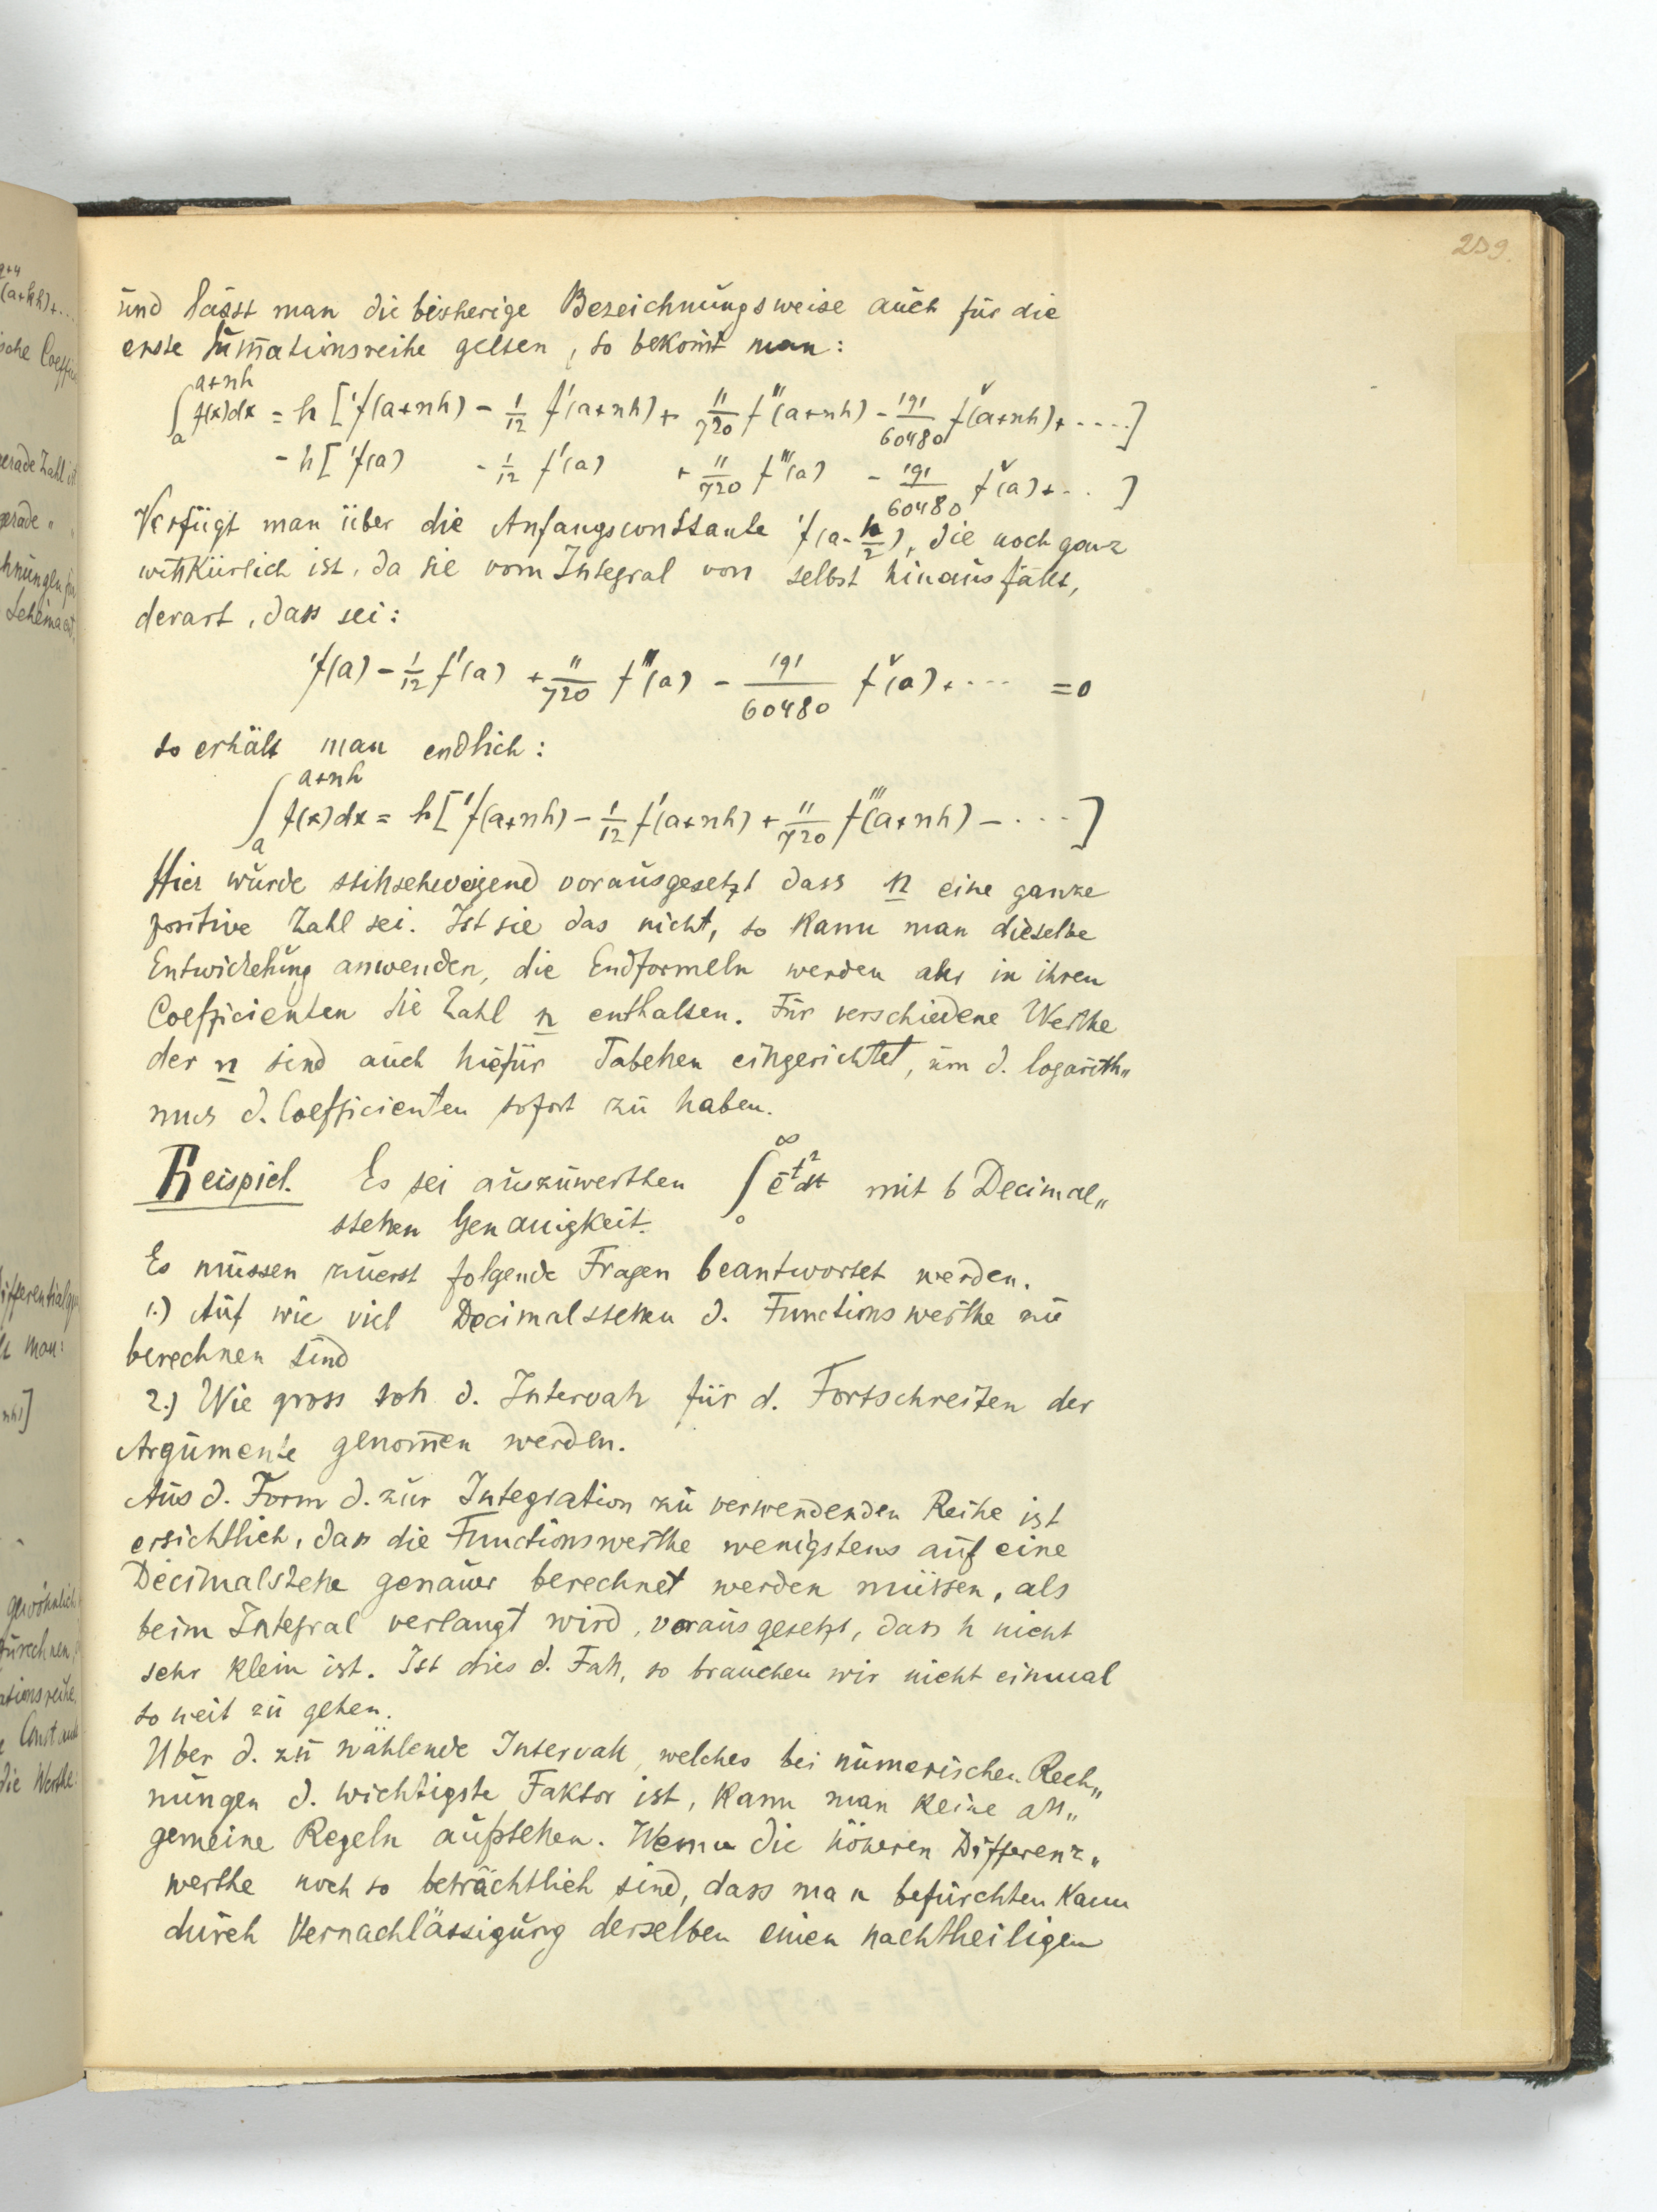 239.
und lässt man die bisherige Bezeichnungsweise auch für die
erste Sum̅ationsreihe gelten, so bekom̅t man:
∫ₐ^{a+nh} f(x)dx = h ['f(a+nh) - 1/12 f'(a+nh) + 11/720 f'''(a+nh) - 191/60480 f^v(a+nh) + ....]
- h ['f(a) - 1/12 f'(a) + 11/720 f'''(a) - 191/60480 f^v(a) + .. ]
Verfügt man über die Anfangsconstante 'f(a-h/2), die noch ganz
willkürlich ist, da sie vom Integral von selbst hinausfällt,
derart, dass sei:
'f(a) - 1/12 f'(a) + 11/720 f'''(a) - 191/60480 f^v(a) + ... = 0
so erhält man endlich:
∫ₐ^{a+nh} f(x)dx = h ['f(a+nh) - 1/12 f'(a+nh) + 11/720 f'''(a+nh) - ....]
Hier wurde stillschweigend vorausgesetzt dass n eine ganze
positive Zahl sei. Ist sie das nicht, so kann man dieselbe
Entwickelung anwenden, die Endformeln werden aber in ihren
Coefficienten die Zahl n enthalten. Für verschiedene Werthe
der n sind auch hiefür Tabellen eingerichtet, um d. logarith„
mus d. Coefficienten sofort zu haben.
Beispiel. Es sei auszuwerthen ∫₀^∞ e^{-t²}dt mit 6 Decimal„
stellen Genauigkeit.
Es müssen zuerst folgende Fragen beantwortet werden.
1.) Auf wie viel Decimalstellen d. Functionswerthe zu
berechnen sind
2.) Wie gross soll d. Intervall für d. Fortschreiten der
Argumente genom̅en werden.
Aus d. Form d. zur Integration zu verwendenden Reihe ist
ersichtlich, dass die Functionswerthe wenigstens auf eine
Decimalstelle genauer berechnet werden müssen, als
beim Integral verlangt wird, vorausgesetzt, dass h nicht
sehr klein ist. Ist dies d. Fall, so brauchen wir nicht einmal
so weit zu gehen.
Über d. zu wählende Intervall, welches bei numerischen Rech„
nungen d. wichtigste Faktor ist, kann man keine all„
gemeine Regeln aufstellen. Wenn die höheren Differenz„
werthe noch so beträchtlich sind, dass man befürchten kann
durch Vernachlässigung derselben einen nachtheiligen